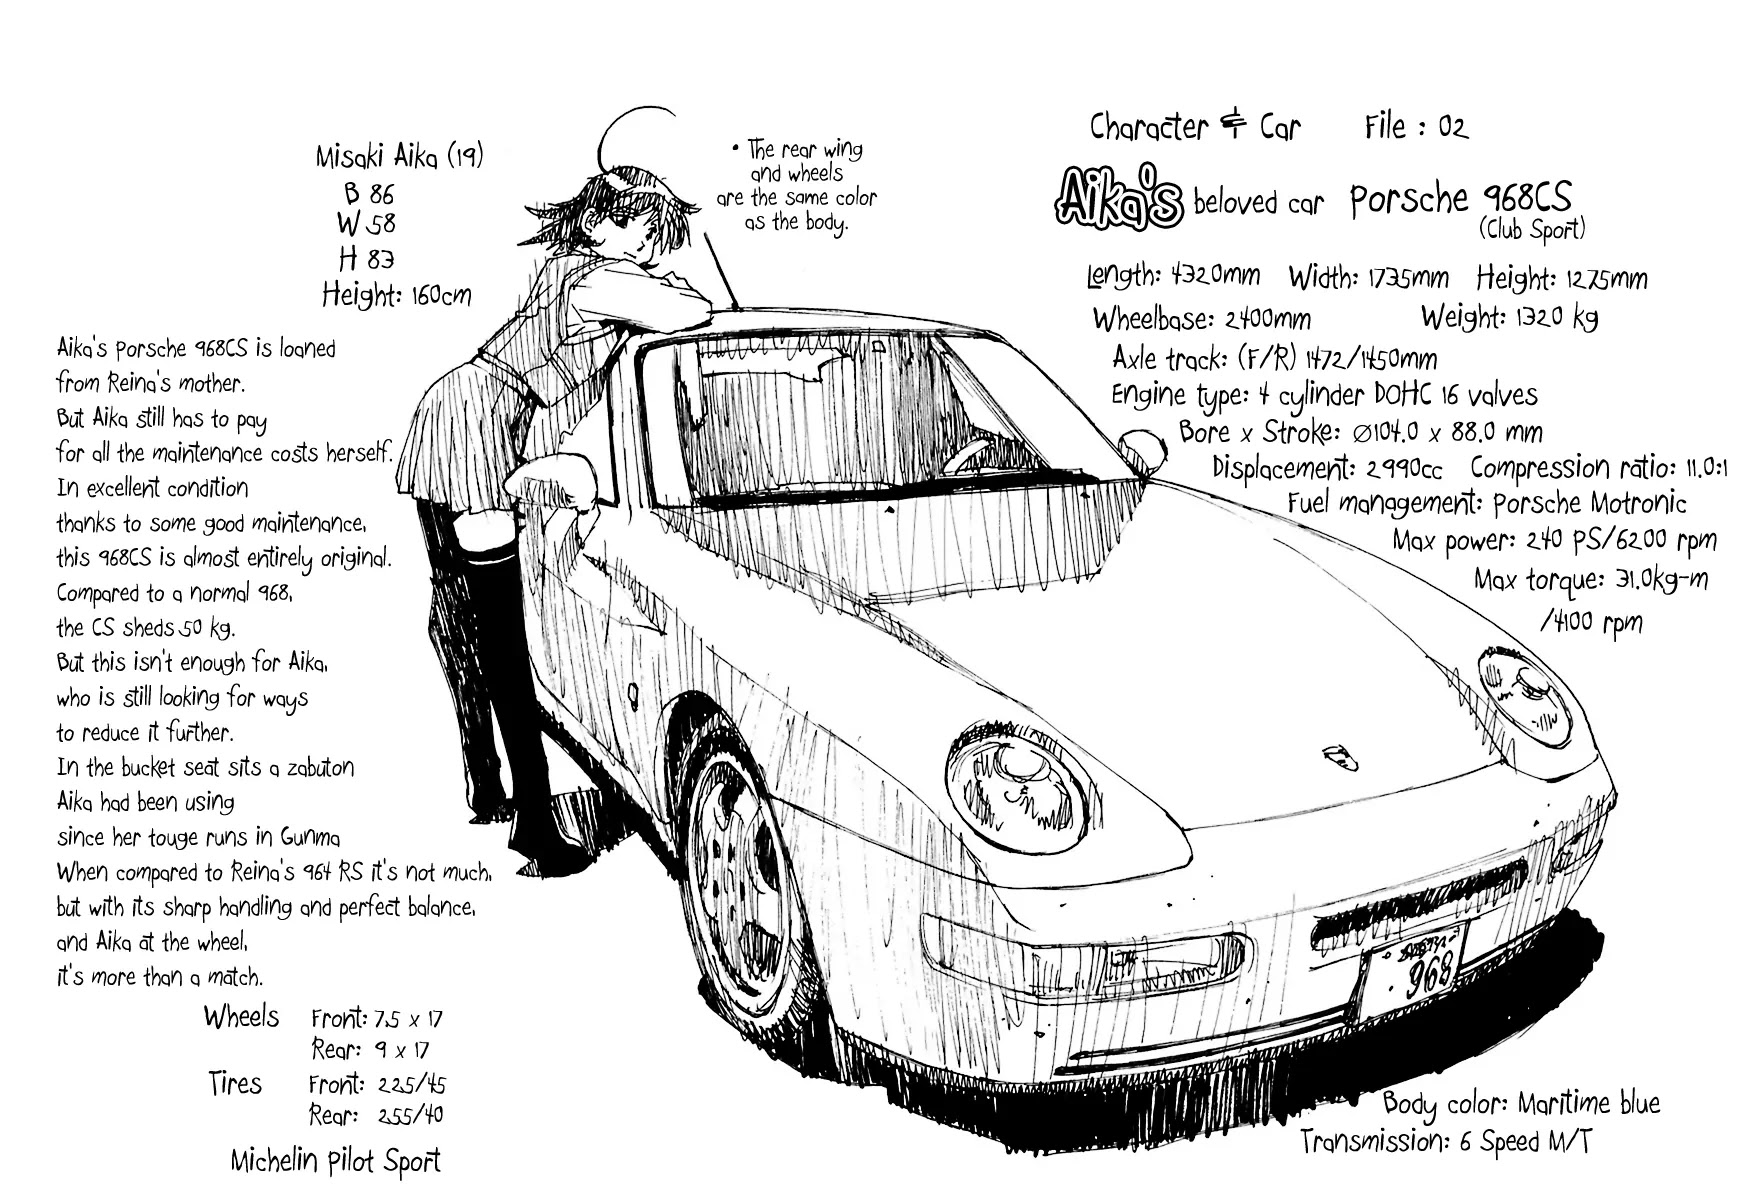 Character & Car File : 02
Aika's beloved car Porsche 968CS
(Club Sport)
Length: 4320mm Width: 1735mm Height: 1275mm
Wheelbase: 2400mm Weight: 1320 kg
Axle track: (F/R) 1472/1450mm
Engine type: 4 cylinder DOHC 16 valves
Bore x Stroke: Ø104.0 x 88.0 mm
Displacement: 2990cc Compression ratio: 11.0:1
Fuel management: Porsche Motronic
Max power: 240 PS/6200 rpm
Max torque: 31.0kg-m
/4100 rpm
• The rear wing
and wheels
are the same color
as the body.
Misaki Aika (19)
B 86
W 58
H 83
Height: 160cm
Aika's Porsche 968CS is loaned
from Reina's mother.
But Aika still has to pay
for all the maintenance costs herself.
In excellent condition
thanks to some good maintenance,
this 968CS is almost entirely original.
Compared to a normal 968,
the CS sheds 50 kg.
But this isn't enough for Aika,
who is still looking for ways
to reduce it further.
In the bucket seat sits a zabuton
Aika had been using
since her touge runs in Gunma
When compared to Reina's 964 RS it's not much,
but with its sharp handling and perfect balance,
and Aika at the wheel,
it's more than a match.
Wheels Front: 7.5 x 17
Rear: 9 x 17
Tires Front: 225/45
Rear: 255/40
Michelin Pilot Sport
968
Body color: Maritime blue
Transmission: 6 Speed M/T